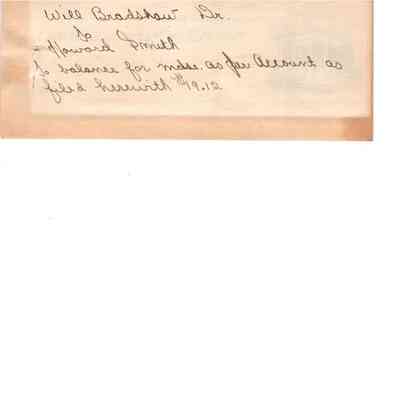 Will Bradshaw Dr.
To
Howard Smith
To balance for mdse. as per Account as
filed herewith $19.12